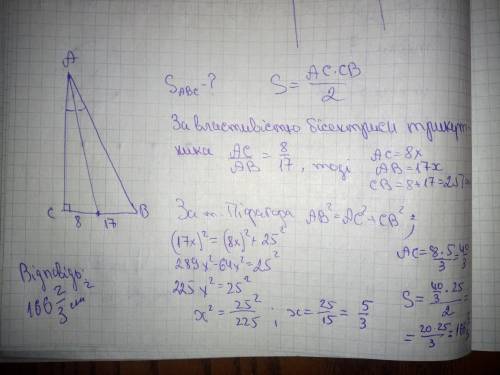 A
C
8
17
B
S_ABC - ?
S = AC·CB / 2
За властивістю бісектриси трикут
ника AC/AB = 8/17, тоді
AC = 8x
AB = 17x
CB = 8+17 = 25
За т. Піфагора AB² = AC² + CB²
(17x)² = (8x)² + 25²
289x² - 64x² = 25²
225x² = 25²
x² = 25²/225 ; x = 25/15 = 5/3
AC = 8·5/3 = 40/3
S = 40/3 · 25 / 2 =
= 20·25/3 = 166
Відповідь:
166 2/3 см²